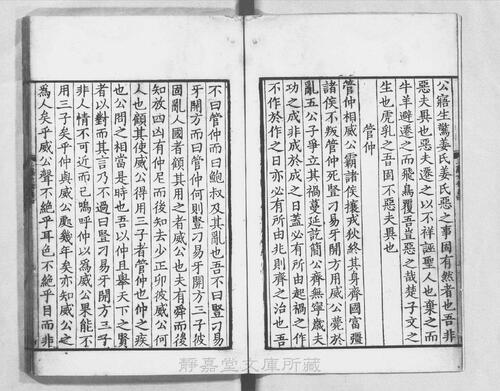 公寤生驚姜氏姜氏惡之事固有然者也吾非
惡夫異也惡夫遷之以不祥誣聖人也棄之而
牛羊避遷之而飛鳥覆吾豈惡之哉楚子文之
生也虎乳之吾固不惡夫異也
管仲
管仲相威公霸諸侯攘戎狄終其身齊國富彊
諸侯不叛管仲死豎刁易牙開方用威公薨於
亂五公子爭立其禍蔓延訖簡公齊無寧歲夫
功之成非成於成之日蓋必有所由起禍之作
不作於作之日亦必有所由兆則齊之治也吾
不曰管仲而曰鮑叔及其亂也吾不曰豎刁易
牙開方而曰管仲何則豎刁易牙開方三子彼
固亂人國者顧其用之者威公也夫有舜而後
知放四凶有仲尼而後知去少正卯彼威公何
人也顧其使威公得用三子者管仲也仲之疾
也公問之相當是時也吾以仲且舉天下之賢
者以對而其言乃不過曰豎刁易牙開方三子
非人情不可近而已嗚呼仲以為威公果能不
用三子矣乎仲與威公處幾年矣亦知威公之
為人矣乎威公聲不絕乎耳色不絕乎目而非
静嘉堂文庫所蔵